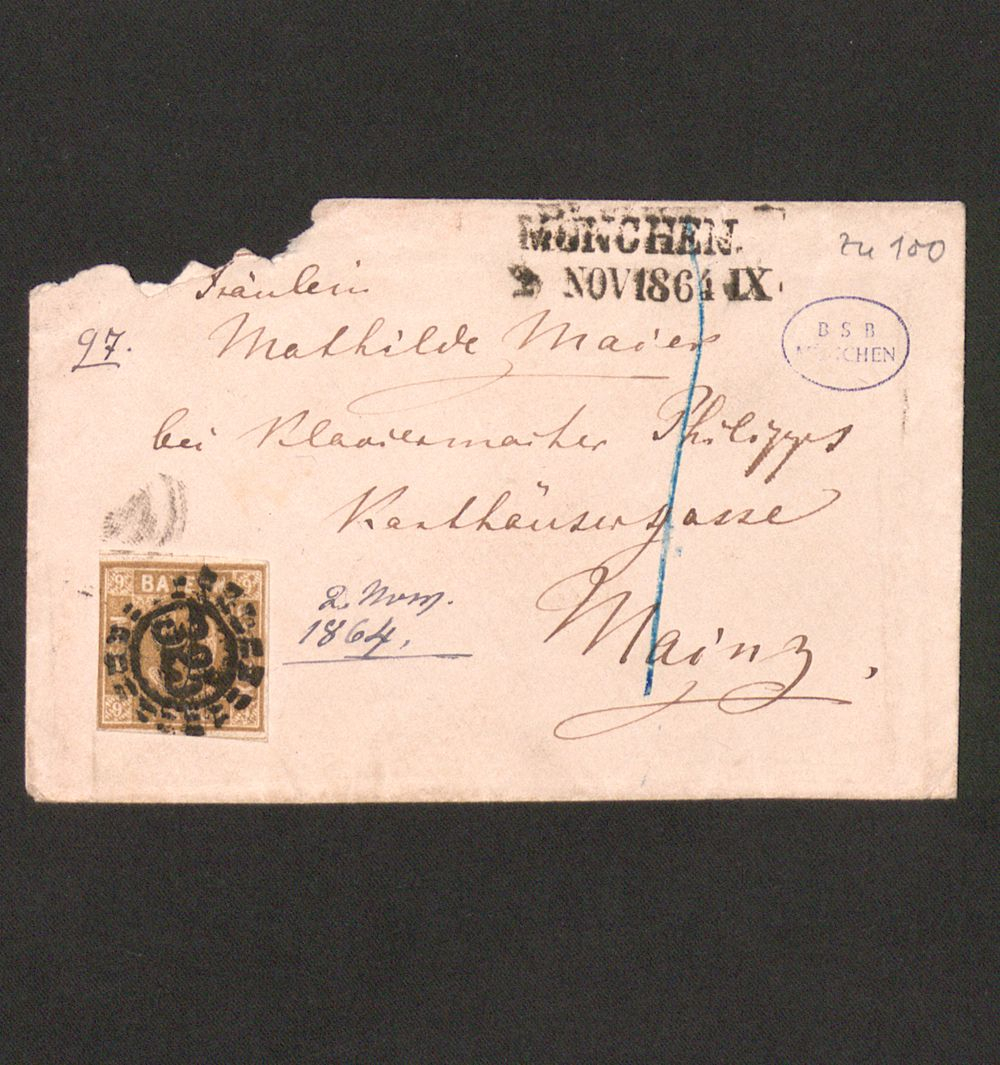 MÜNCHEN.
2 NOV 1864 IX
zu 100
BSB
MÜNCHEN
Fräulein
97.
Mathilde Maier
bei Klaviermacher Philipps
Karthäusergasse
Mainz,
2. Novm.
1864.
9 BAYERN 9
9 9